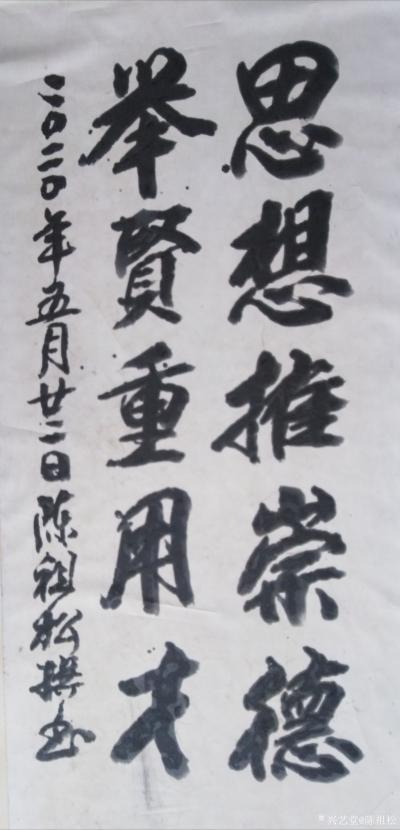 思想推崇德
举賢重用才
二〇二〇年五月廿二日陈祖松撰书
兴艺堂@陈祖松